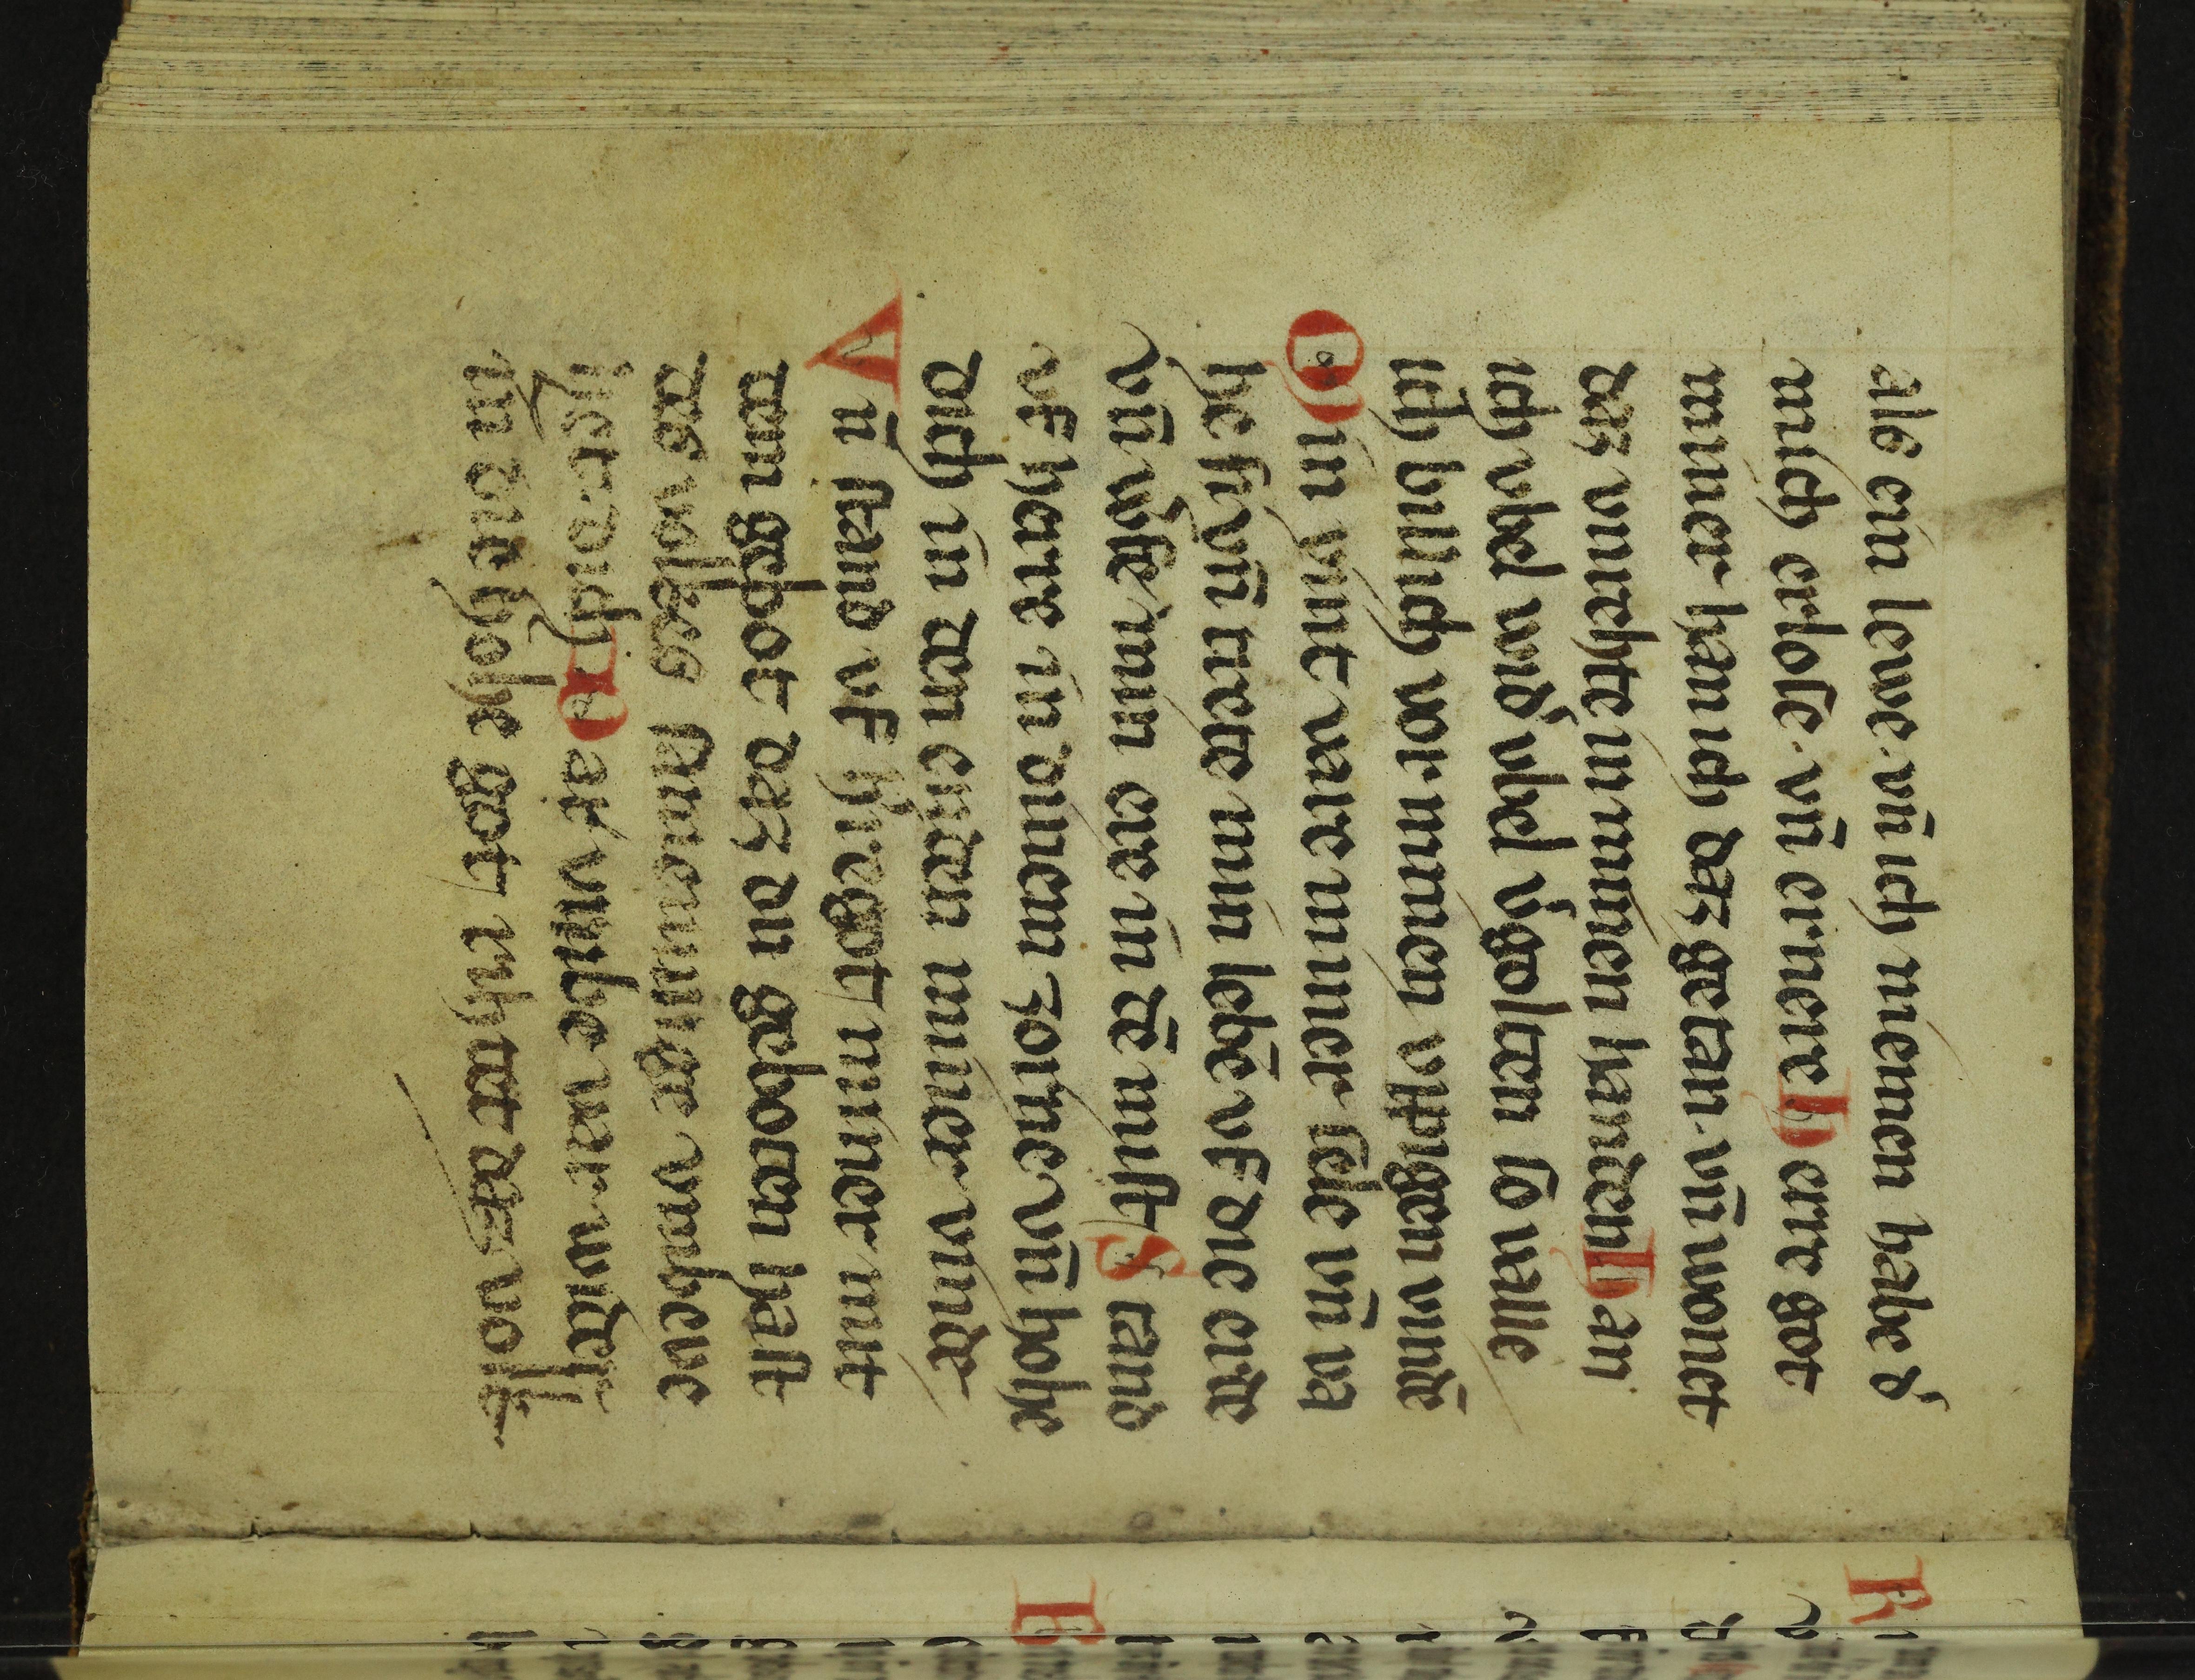 als ein lewe · vñ ich niemen habe d'
mich erlose · vñ ernere herre got
miner han ich daz getan · vñ wonet
daz vnrehte in minen handen han
ich vbel wid' vbel v'golten so valle
ich billich vor minen vygen vnde
Min vint vare miner sele vñ va
he si vñ trette min lebē vf die erde
vñ min ere in dē mist Stand
vf herre in dinem zorne vñ hohe
dich in den enden miner vinde
An stand vf herre got miner mit
dem gebot daz du geboten hast
des volkes samenunge vmbeve
het dich Dar vmbe var wider
in die hohe got rihtet daz volk